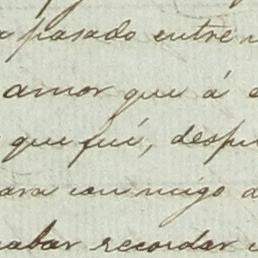 pasado entre
amor que á
que fué, despu
ara con migo
abar recordar